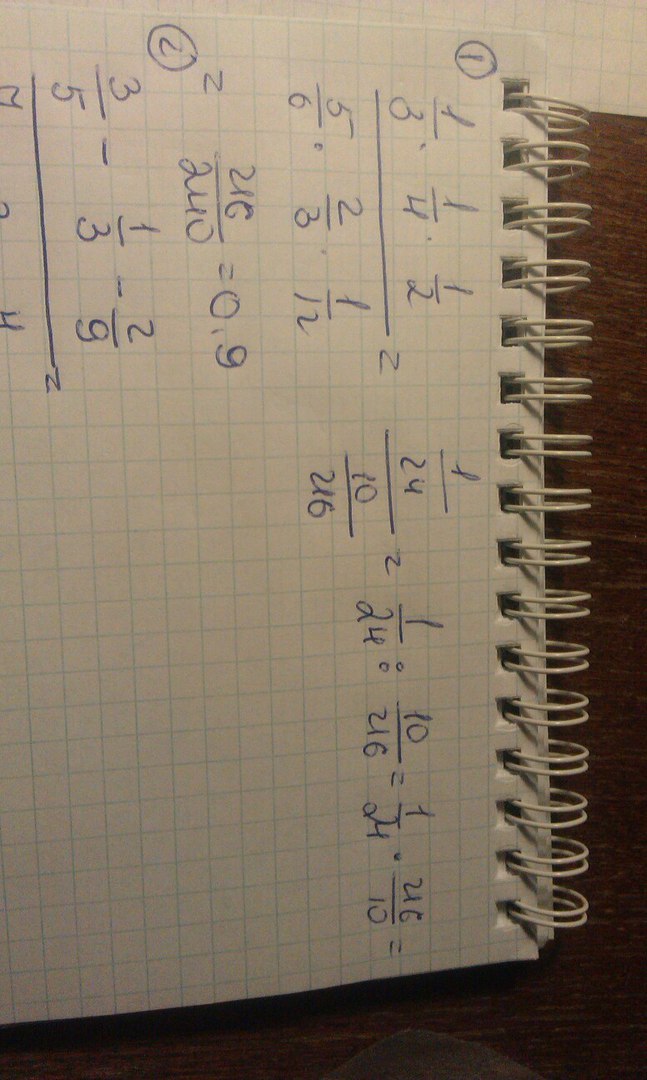 ①
1/3 · 1/4 · 1/2
5/6 · 2/3 · 1/12
= 1/24
10/216
= 1/24 : 10/216 = 1/24 · 216/10 =
= 216/240 = 0,9
②
3/5 - 1/3 - 2/9
=